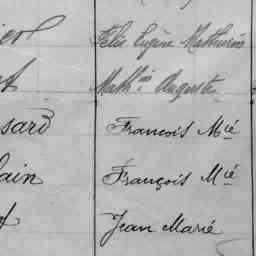 Félix Eugène Mathurin
Math.in Auguste
sard François M.ie
ain François M.ie
Jean Marie